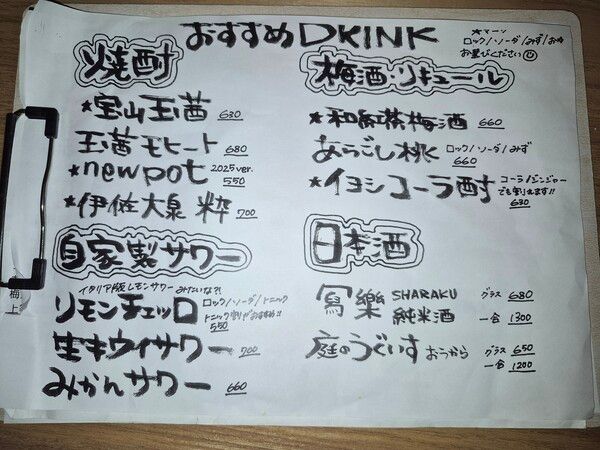 おすすめDRINK
★マーク
ロック/ソーダ/みず/お湯
お選びください
焼酎
★宝山玉茜 630
玉茜モヒート 680
★newpot 2025ver. 550
★伊佐大泉 粋 700
自家製サワー
イタリア版レモンサワーみたいな?!
リモンチェッロ ロック/ソーダ/トニック
トニック割りがおすすめ!!
550
生キウイサワー 700
みかんサワー 660
梅酒・リキュール
★和紅茶梅酒 660
あらごし桃 ロック/ソーダ/みず
660
★イヨシコーラ酎 コーラ/ジンジャー
でも割れます!!
630
日本酒
寫樂 SHARAKU 純米酒 グラス 680
一合 1300
庭のうぐいす おうから グラス 650
一合 1200
梅
上